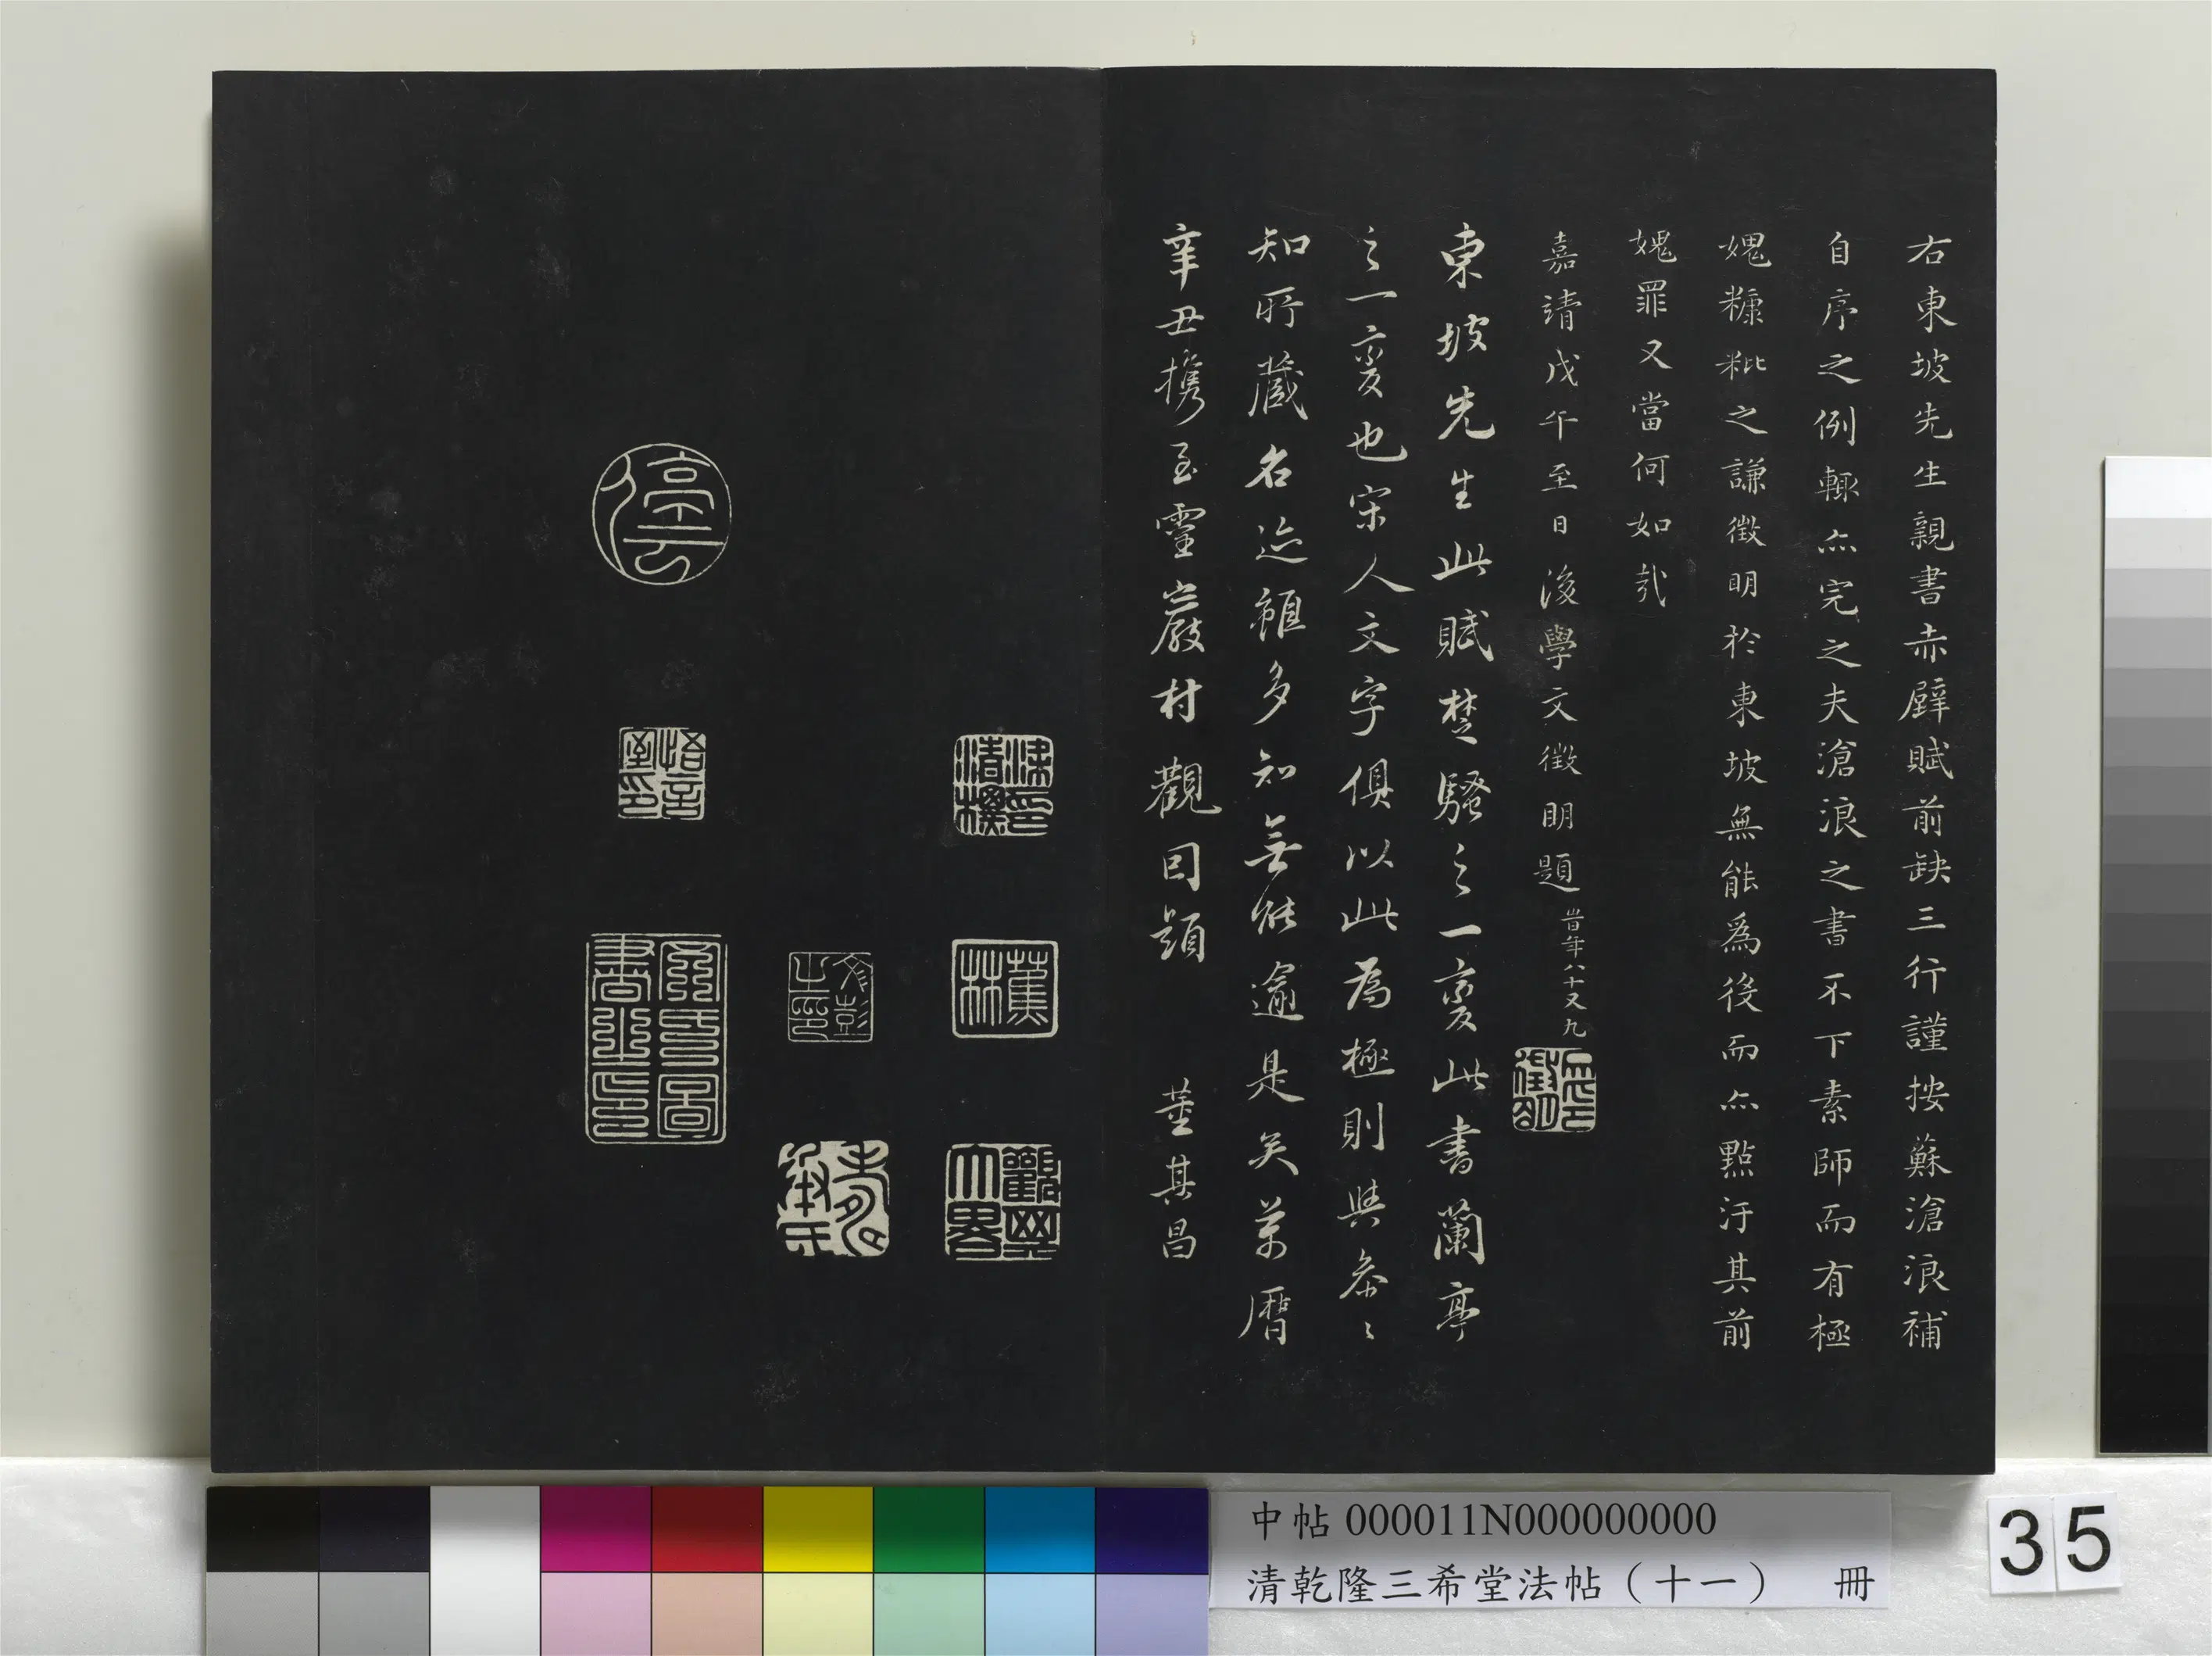 右東坡先生親書赤壁賦前缺三行謹按蘇滄浪補
自序之例輙亦完之夫滄浪之書不下素師而有極
媿糠粃之謙徵明於東坡無能為役而亦點汙其前
媿罪又當何如哉
嘉靖戊午至日後學文徵明題
峕年八十又九
東坡先生此賦楚騷之一變此書蘭亭
之一變也宋人文字俱以此為極則與叅〻
知所藏名迹雖多知無能逾是矣萬曆
辛丑携至靈巖村觀因題 董其昌
停雲
悟言室印
蕉林
文彭之印
觀其大略
中帖 000011N000000000
清乾隆三希堂法帖（十一） 冊
35